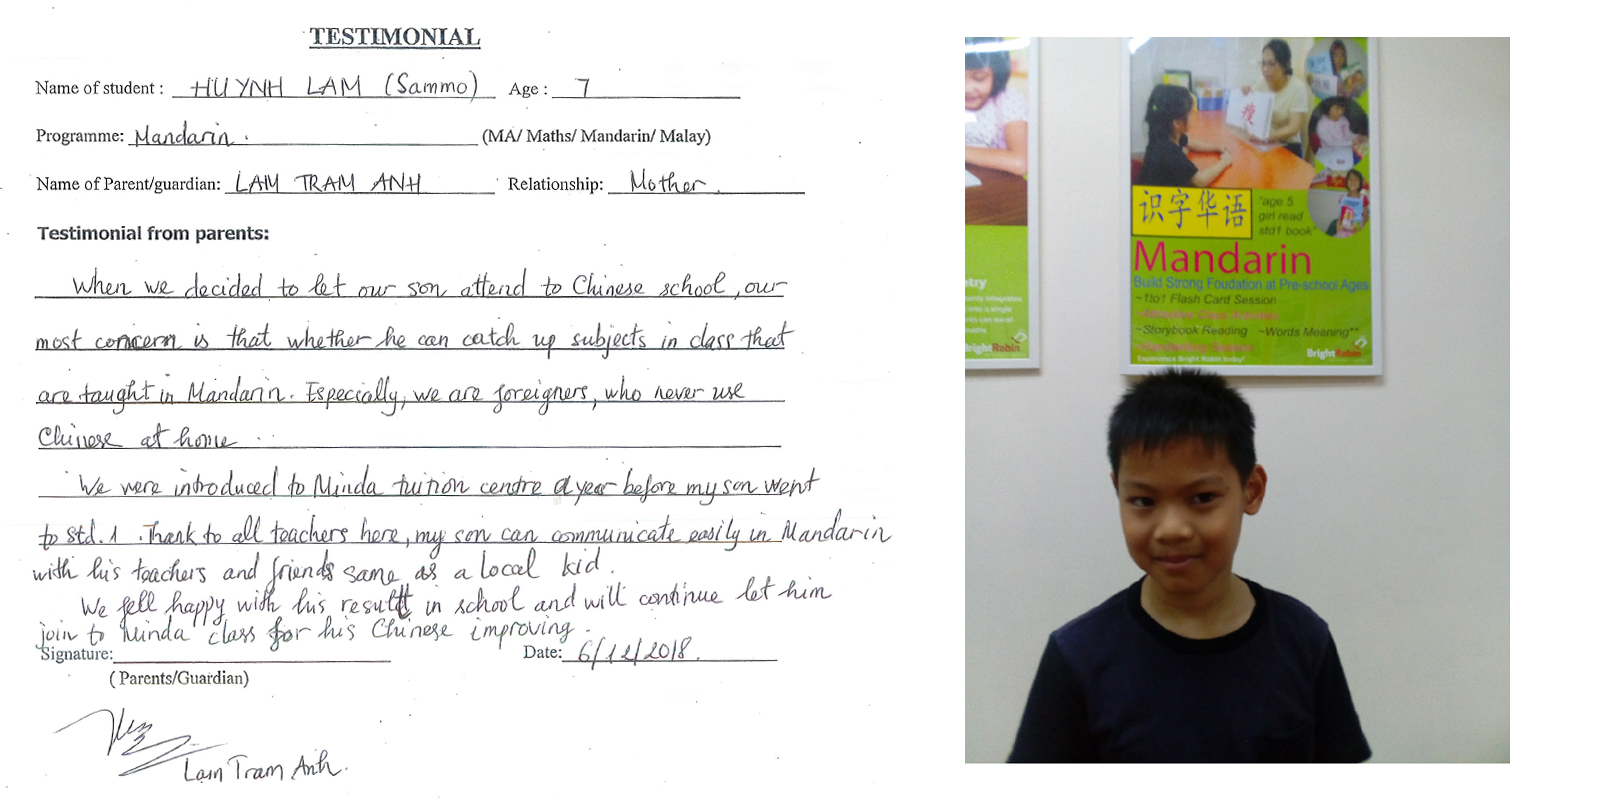 TESTIMONIAL
Name of student : HUYNH LAM (Sammo) Age : 7
Programme: Mandarin. (MA/ Maths/ Mandarin/ Malay)
Name of Parent/guardian: LAM TRAM ANH Relationship: Mother.
Testimonial from parents:
When we decided to let our son attend to Chinese school, our
most concern is that whether he can catch up subjects in class that
are taught in Mandarin. Especially, we are foreigners, who never use
Chinese at home.
We were introduced to Minda tuition centre a year before my son went
to Std. 1. Thank to all teachers here, my son can communicate easily in Mandarin
with his teachers and friends same as a local kid.
We fell happy with his result in school and will continue let him
join to Minda class for his Chinese improving.
Signature: Date: 6/12/2018.
( Parents/Guardian)
Lam Tram Anh.
瘦
识字华语
"age 5
girl read
std1 book"
Mandarin
Build Strong Foudation at Pre-school Ages
~1to1 Flash Card Session
~Storybook Reading ~Words Meaning**
Experience Bright Robin today!
BrightRobin
ntry
BrightRobin